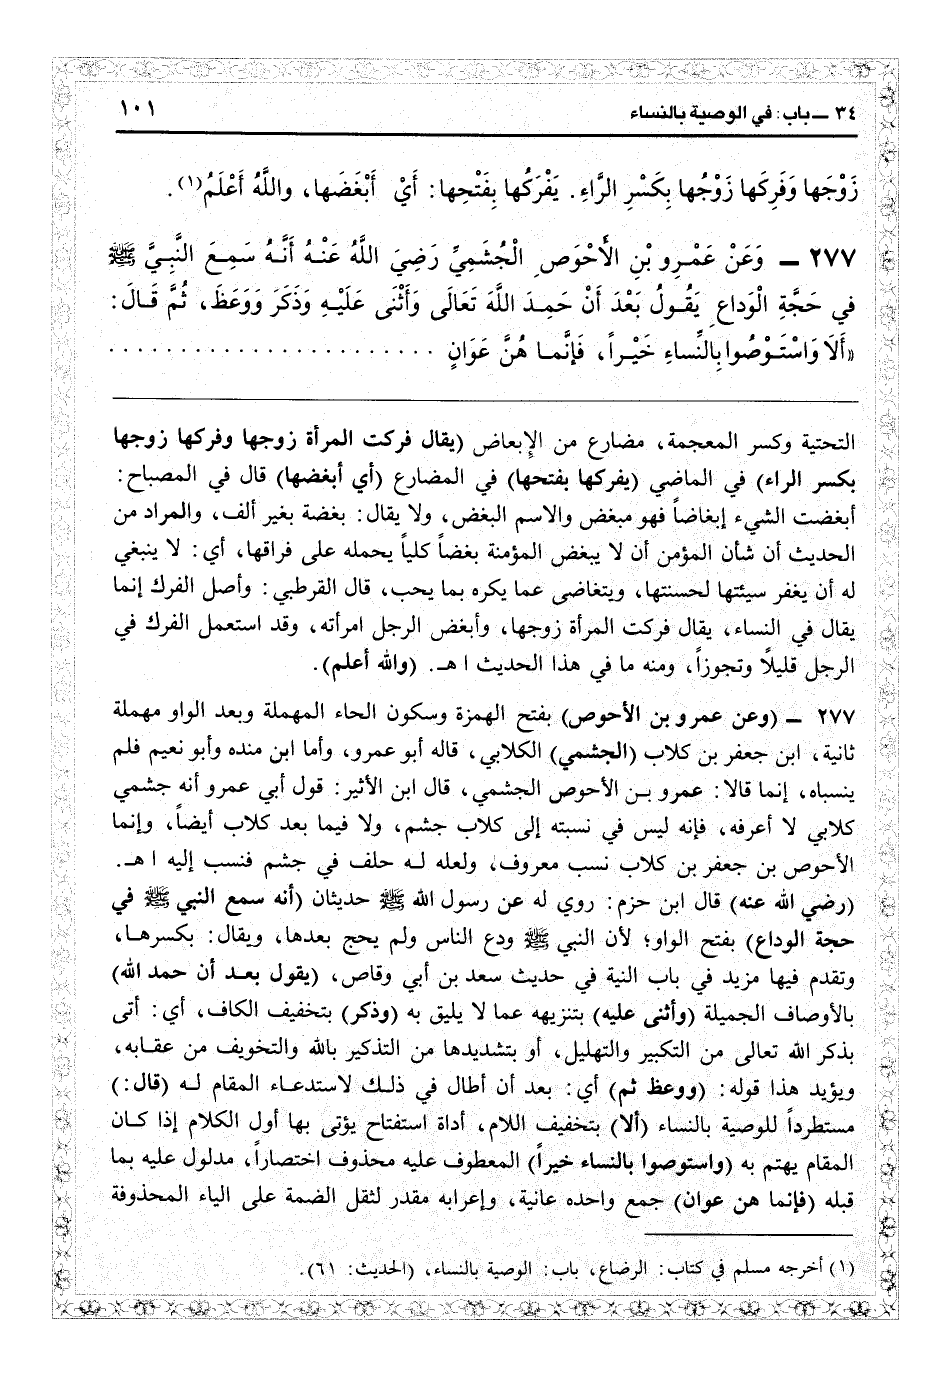 ٣٤ ــ باب: في الوصية بالنساء
١٠١
زَوْجَها وَفَرِكَها زَوْجُها بِكَسْرِ الرَّاءِ. يَفْرَكُها بِفَتْحِها: أَيْ أَبْغَضَها، واللَّهُ أَعْلَمُ(١).
٢٧٧ ــ وَعَنْ عَمْرِو بْنِ الأَحْوَصِ الْجُشَمِيِّ رَضِيَ اللَّهُ عَنْهُ أَنَّهُ سَمِعَ النَّبِيَّ ﷺ
في حَجَّةِ الْوَداعِ يَقُولُ بَعْدَ أَنْ حَمِدَ اللَّهَ تَعَالَى وَأَثْنَى عَلَيْهِ وَذَكَرَ وَوَعَظَ، ثُمَّ قَالَ:
«أَلَا وَاسْتَوْصُوا بِالنِّساءِ خَيْراً، فَإِنَّما هُنَّ عَوَانٍ . . . . . . . . . . . . . . . . . . . . . .
التحتية وكسر المعجمة، مضارع من الإبعاض (يقال فركت المرأة زوجها وفركها زوجها
بكسر الراء) في الماضي (يفركها بفتحها) في المضارع (أي أبغضها) قال في المصباح:
أبغضت الشيء إبغاضاً فهو مبغض والاسم البغض، ولا يقال: بغضة بغير ألف، والمراد من
الحديث أن شأن المؤمن أن لا يبغض المؤمنة بغضاً كلياً يحمله على فراقها، أي: لا ينبغي
له أن يغفر سيئتها لحسنتها، ويتغاضى عما يكره بما يحب، قال القرطبي: وأصل الفرك إنما
يقال في النساء، يقال فركت المرأة زوجها، وأبغض الرجل امرأته، وقد استعمل الفرك في
الرجل قليلاً وتجوزاً، ومنه ما في هذا الحديث ا هـ. (والله أعلم).
٢٧٧ ــ (وعن عمرو بن الأحوص) بفتح الهمزة وسكون الحاء المهملة وبعد الواو مهملة
ثانية، ابن جعفر بن كلاب (الجشمي) الكلابي، قاله أبو عمرو، وأما ابن منده وأبو نعيم فلم
ينسباه، إنما قالا: عمرو بن الأحوص الجشمي، قال ابن الأثير: قول أبي عمرو أنه جشمي
كلابي لا أعرفه، فإنه ليس في نسبته إلى كلاب جشم، ولا فيما بعد كلاب أيضاً، وإنما
الأحوص بن جعفر بن كلاب نسب معروف، ولعله له حلف في جشم فنسب إليه ا هـ.
(رضي الله عنه) قال ابن حزم: روي له عن رسول الله ﷺ حديثان (أنه سمع النبي ﷺ في
حجة الوداع) بفتح الواو؛ لأن النبي ﷺ ودع الناس ولم يحج بعدها، ويقال: بكسرها،
وتقدم فيها مزيد في باب النية في حديث سعد بن أبي وقاص، (يقول بعد أن حمد الله)
بالأوصاف الجميلة (وأثنى عليه) بتنزيهه عما لا يليق به (وذكر) بتخفيف الكاف، أي: أتى
بذكر الله تعالى من التكبير والتهليل، أو بتشديدها من التذكير بالله والتخويف من عقابه،
ويؤيد هذا قوله: (ووعظ ثم) أي: بعد أن أطال في ذلك لاستدعاء المقام له (قال:)
مستطرداً للوصية بالنساء (ألا) بتخفيف اللام، أداة استفتاح يؤتى بها أول الكلام إذا كان
المقام يهتم به (واستوصوا بالنساء خيراً) المعطوف عليه محذوف اختصاراً، مدلول عليه بما
قبله (فإنما هن عوان) جمع واحده عانية، وإعرابه مقدر لثقل الضمة على الياء المحذوفة
(١) أخرجه مسلم في كتاب: الرضاع، باب: الوصية بالنساء، (الحديث: ٦١).